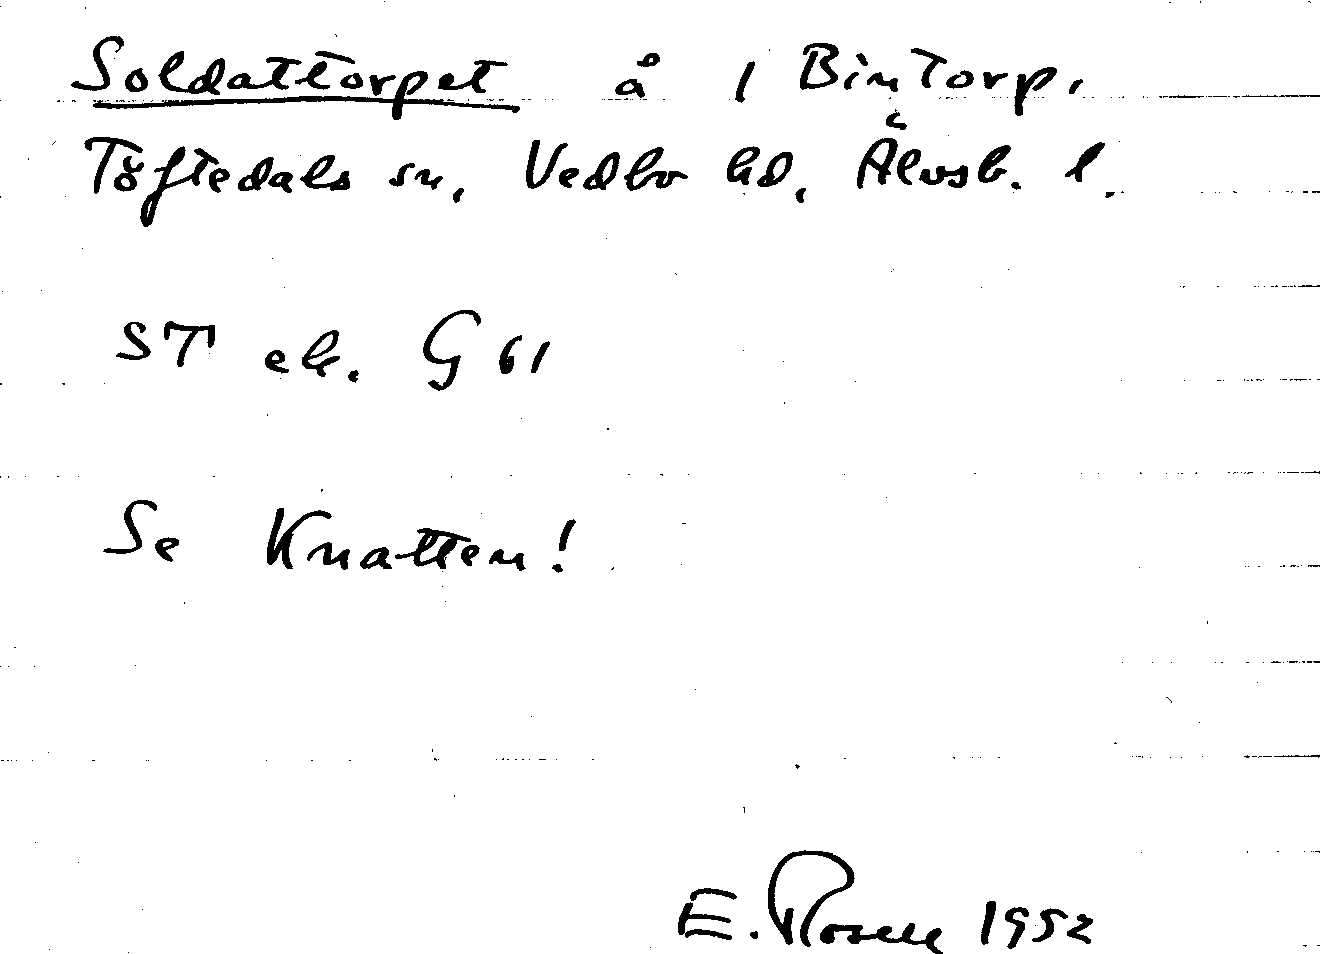 Soldattorpet å 1 Bintorp,
Töftedals sn, Vedbo hd, Älvsb. l.
ST ek. G 61
Se Knatten!
E. Rosell 1952